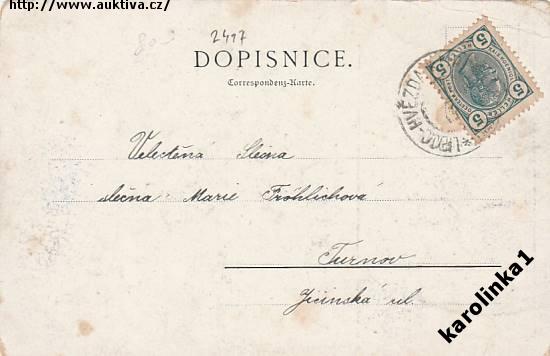 http://www.auktiva.cz/
2417
DOPISNICE.
Correspondenz-Karte.
5 5 5 5
HVĚZDA
Velectěná Slečna
slečna Marie Fröhlichová
Turnov
Jičínská ul.
karolinka1